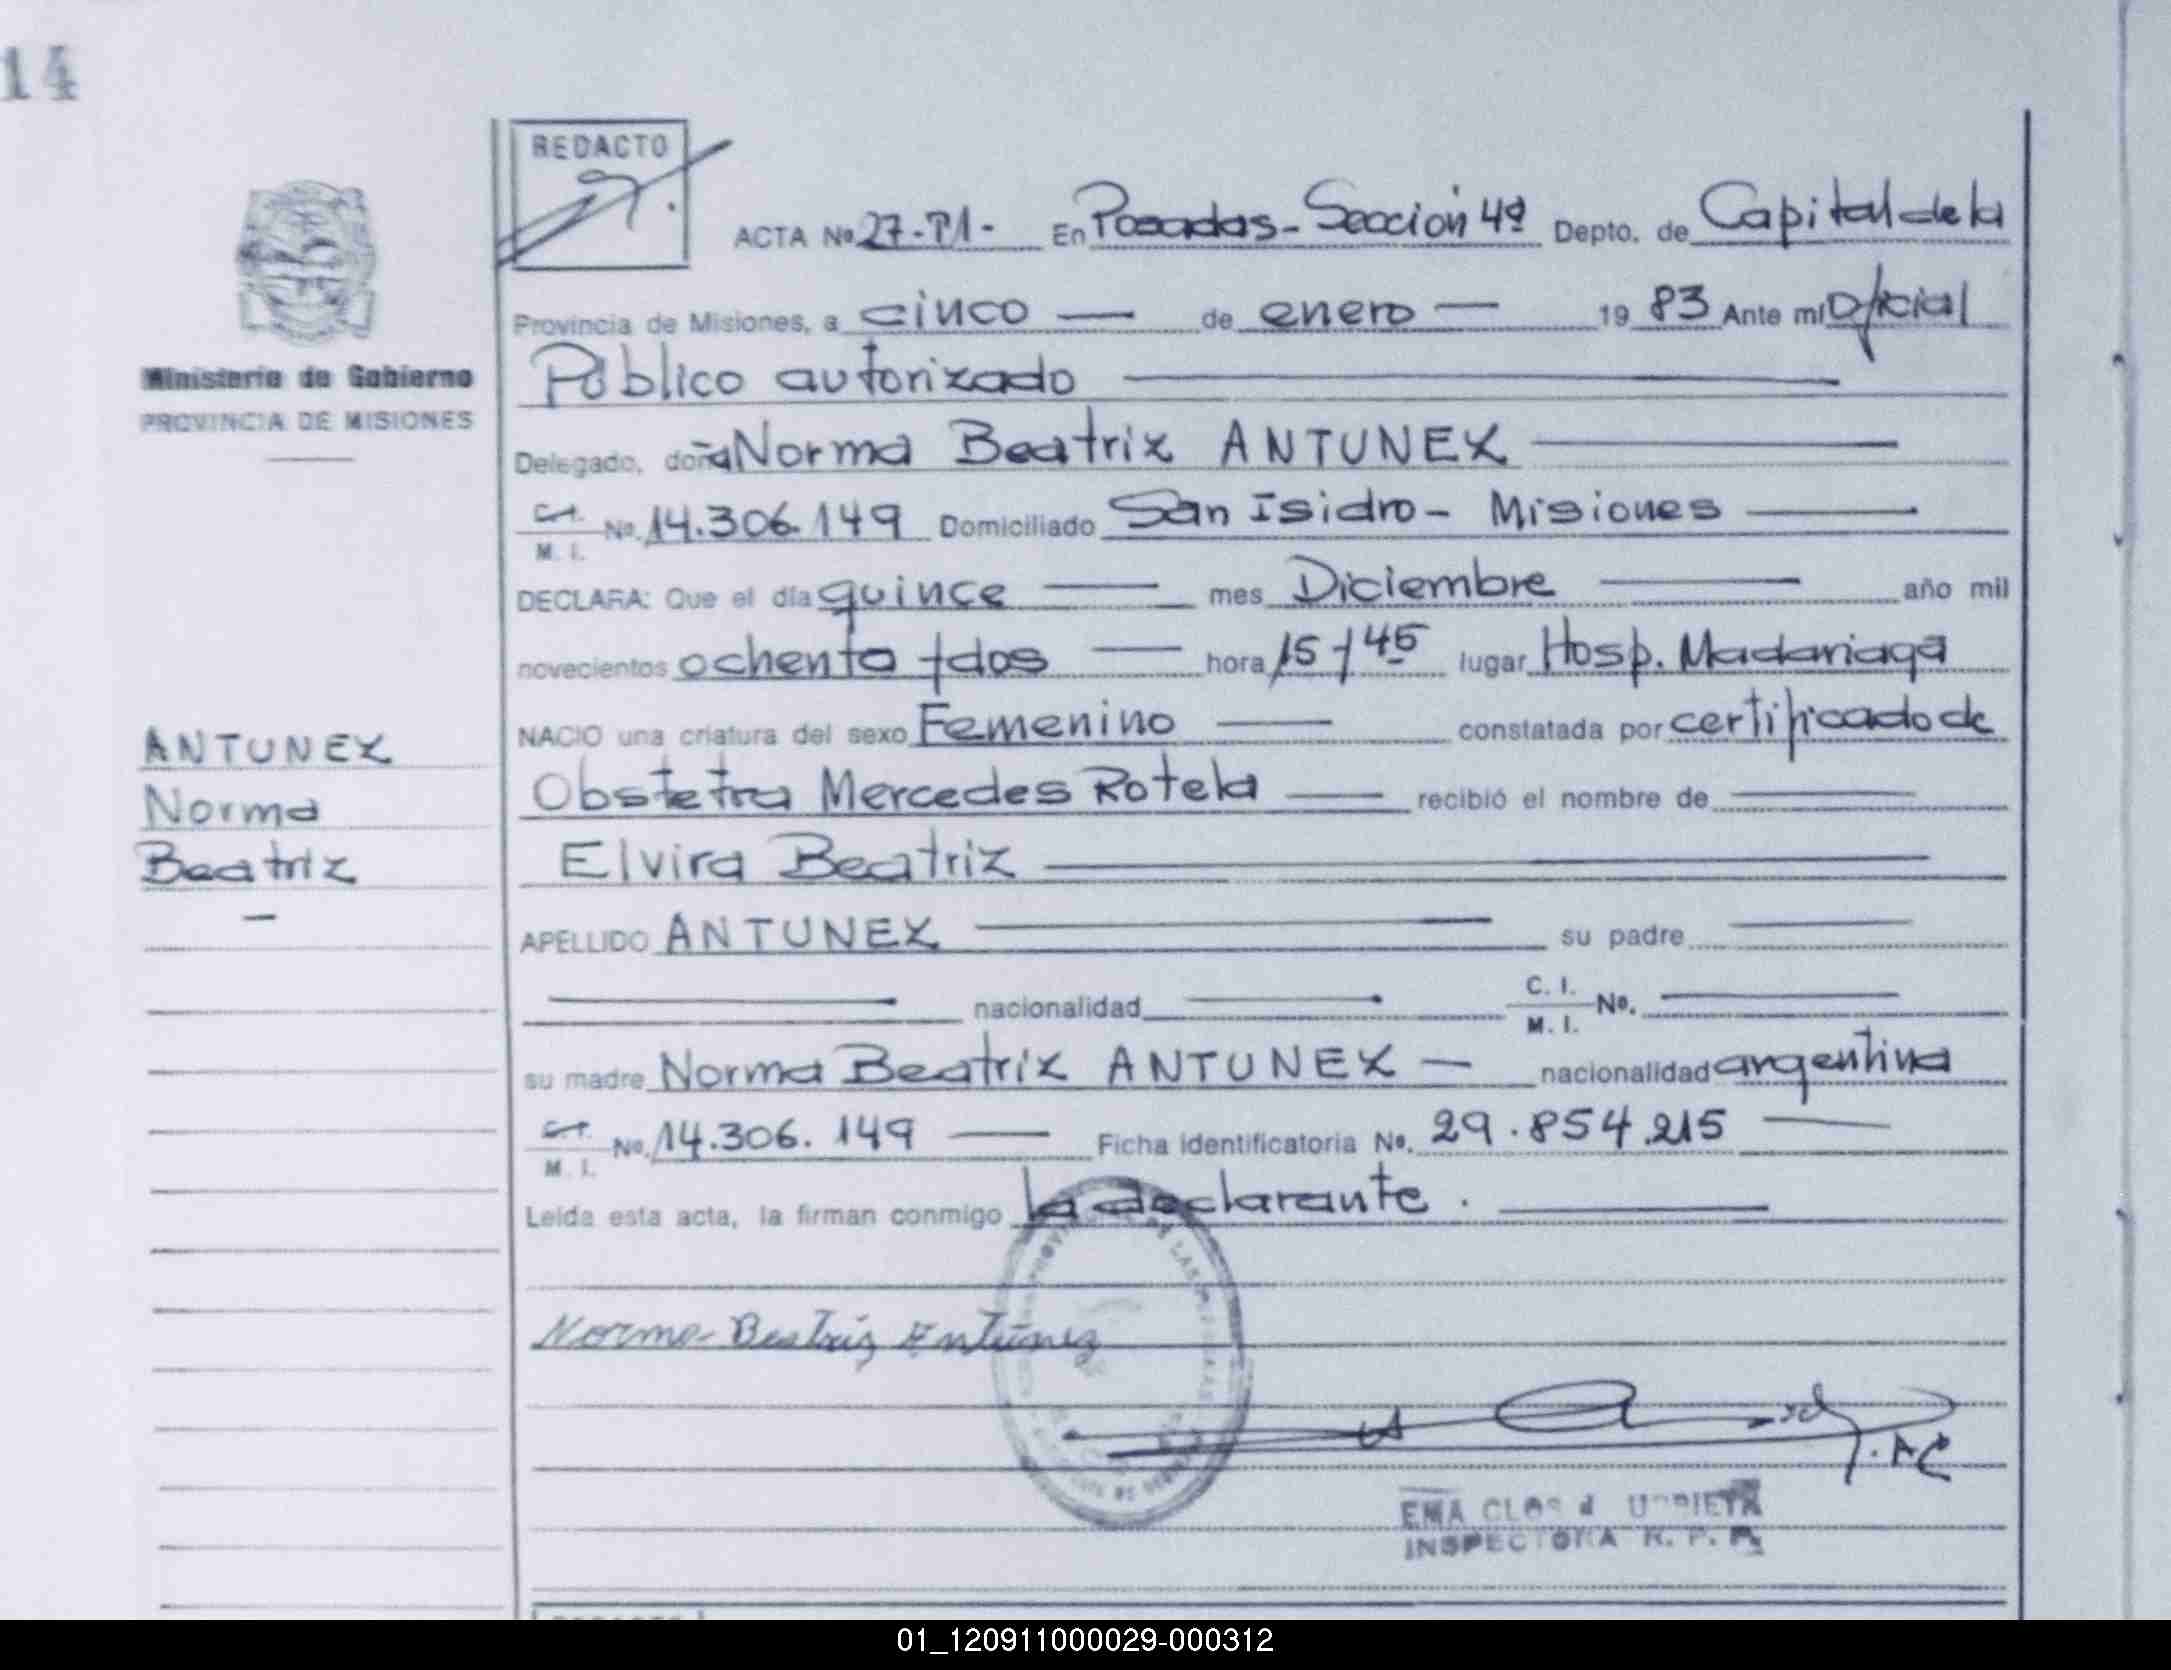 14
REDACTO
ACTA Nº 27-T1- En Posadas-Sección 4ª Depto. de Capital de la
Provincia de Misiones, a cinco — de enero — 1983 Ante mí Oficial
Ministerio de Gobierno
PROVINCIA DE MISIONES
Público autorizado
Delegado, doña Norma Beatriz ANTUNEZ
C.I. M. I. Nº. 14.306.149 Domiciliado San Isidro- Misiones
DECLARA: Que el día quince — mes Diciembre — año mil
novecientos ochenta y dos — hora 15 y 45 lugar Hosp. Madariaga
NACIO una criatura del sexo Femenino — constatada por certificado de
Obstetra Mercedes Rotela — recibió el nombre de
Elvira Beatriz
APELLIDO ANTUNEZ — su padre
nacionalidad C. I. M. I. Nº.
su madre Norma Beatriz ANTUNEZ — nacionalidad argentina
C.I. M. I. Nº. 14.306.149 — Ficha identificatoria Nº. 29.854.215
Leída esta acta, la firman conmigo la declarante.
ANTUNEZ
Norma
Beatriz
—
Norma Beatriz Antunez
DE LAS
EMA CLOS d URRIETA
INSPECTORA R. P. P.
01_120911000029-000312